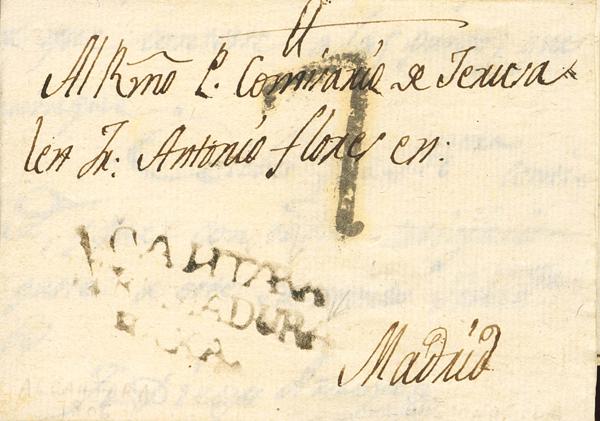 Al Rmõ P. Comisario de Jerusa
len Fr. Antonio flores en:
7
ALCANTARA
EXTREMADURA
BAXA
Madrid